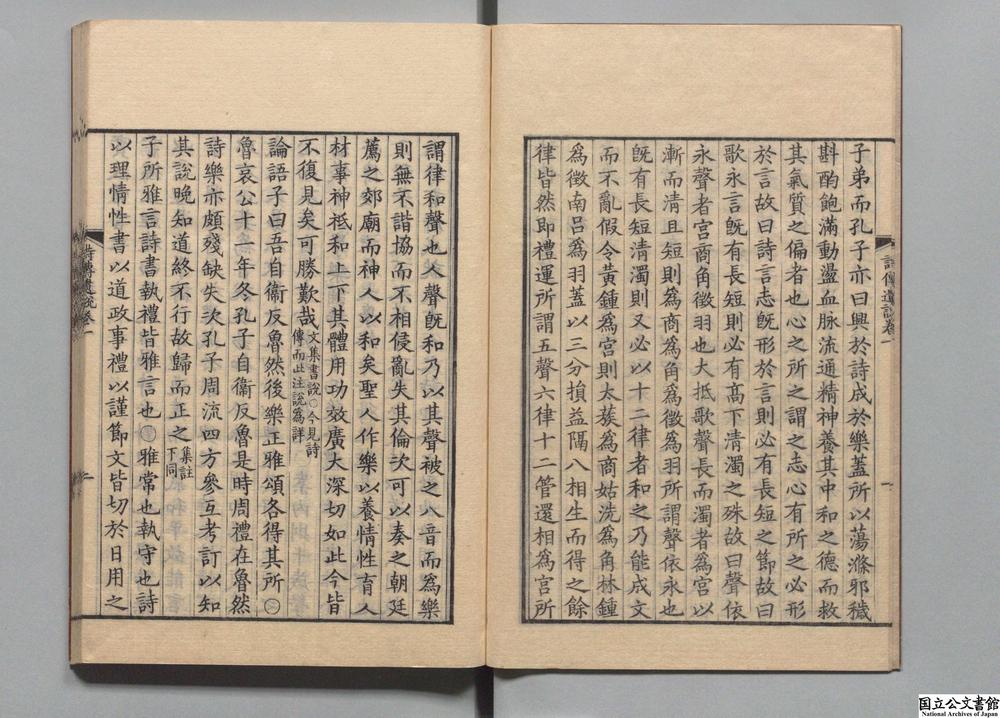 子弟而孔子亦曰興於詩成於樂蓋所以蕩滌邪穢
斟酌飽滿動盪血脉流通精神養其中和之德而救
其氣質之偏者也心之所之謂之志心有所之必形
於言故曰詩言志旣形於言則必有長短之節故曰
歌永言旣有長短則必有高下清濁之殊故曰聲依
永聲者宮商角徵羽也大抵歌聲長而濁者爲宮以
漸而清且短則爲商爲角爲徵爲羽所謂聲依永也
旣有長短清濁則又必以十二律者和之乃能成文
而不亂假令黃鍾爲宮則太蔟爲商姑洗爲角林鍾
爲徵南呂爲羽蓋以三分損益隔八相生而得之餘
律皆然即禮運所謂五聲六律十二管還相爲宮所
詩傳遺說卷一
一
謂律和聲也人聲旣和乃以其聲被之八音而爲樂
則無不諧協而不相侵亂失其倫次可以奏之朝廷
薦之郊廟而神人以和矣聖人作樂以養情性育人
材事神祗和上下其體用功效廣大深切如此今皆
不復見矣可勝歎哉文集書說○今見詩
傳而此注說爲詳
論語子曰吾自衞反魯然後樂正雅頌各得其所○
魯哀公十一年冬孔子自衞反魯是時周禮在魯然
詩樂亦頗殘缺失次孔子周流四方參互考訂以知
其說晚知道終不行故歸而正之集註
下同
子所雅言詩書執禮皆雅言也○雅常也執守也詩
以理情性書以道政事禮以謹節文皆切於日用之
詩傳遺說卷一
二
国立公文書館
National Archives of Japan